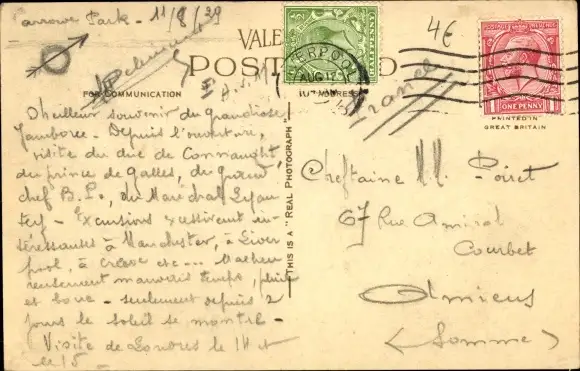 Arrowe Park - 11/8/29
4€
VALE
POST D
LIVERPOOL
AUG 12
POSTAGE REVENUE
ONE PENNY
PRINTED IN
GREAT BRITAIN
FOR COMMUNICATION
ADDRESS
France
Meilleur souvenir du grandiose
Jamboree - Depuis l'ouverture,
visite du duc de Connaught,
du prince de Galles, du grand
chef B.P., du Maréchal Lyau
tey - Excursions in-
téressantes à Manchester, à Liver
pool, à etc... Malheu
reusement mauvais temps, pluie
et boue - seulement depuis 2
jours le soleil se montre -
Visite de Londres le 14 et
le 15
THIS IS A "REAL PHOTOGRAPH"
Cheftaine M. Poiret
67 Rue Amiral
Courbet
Amiens
(Somme)